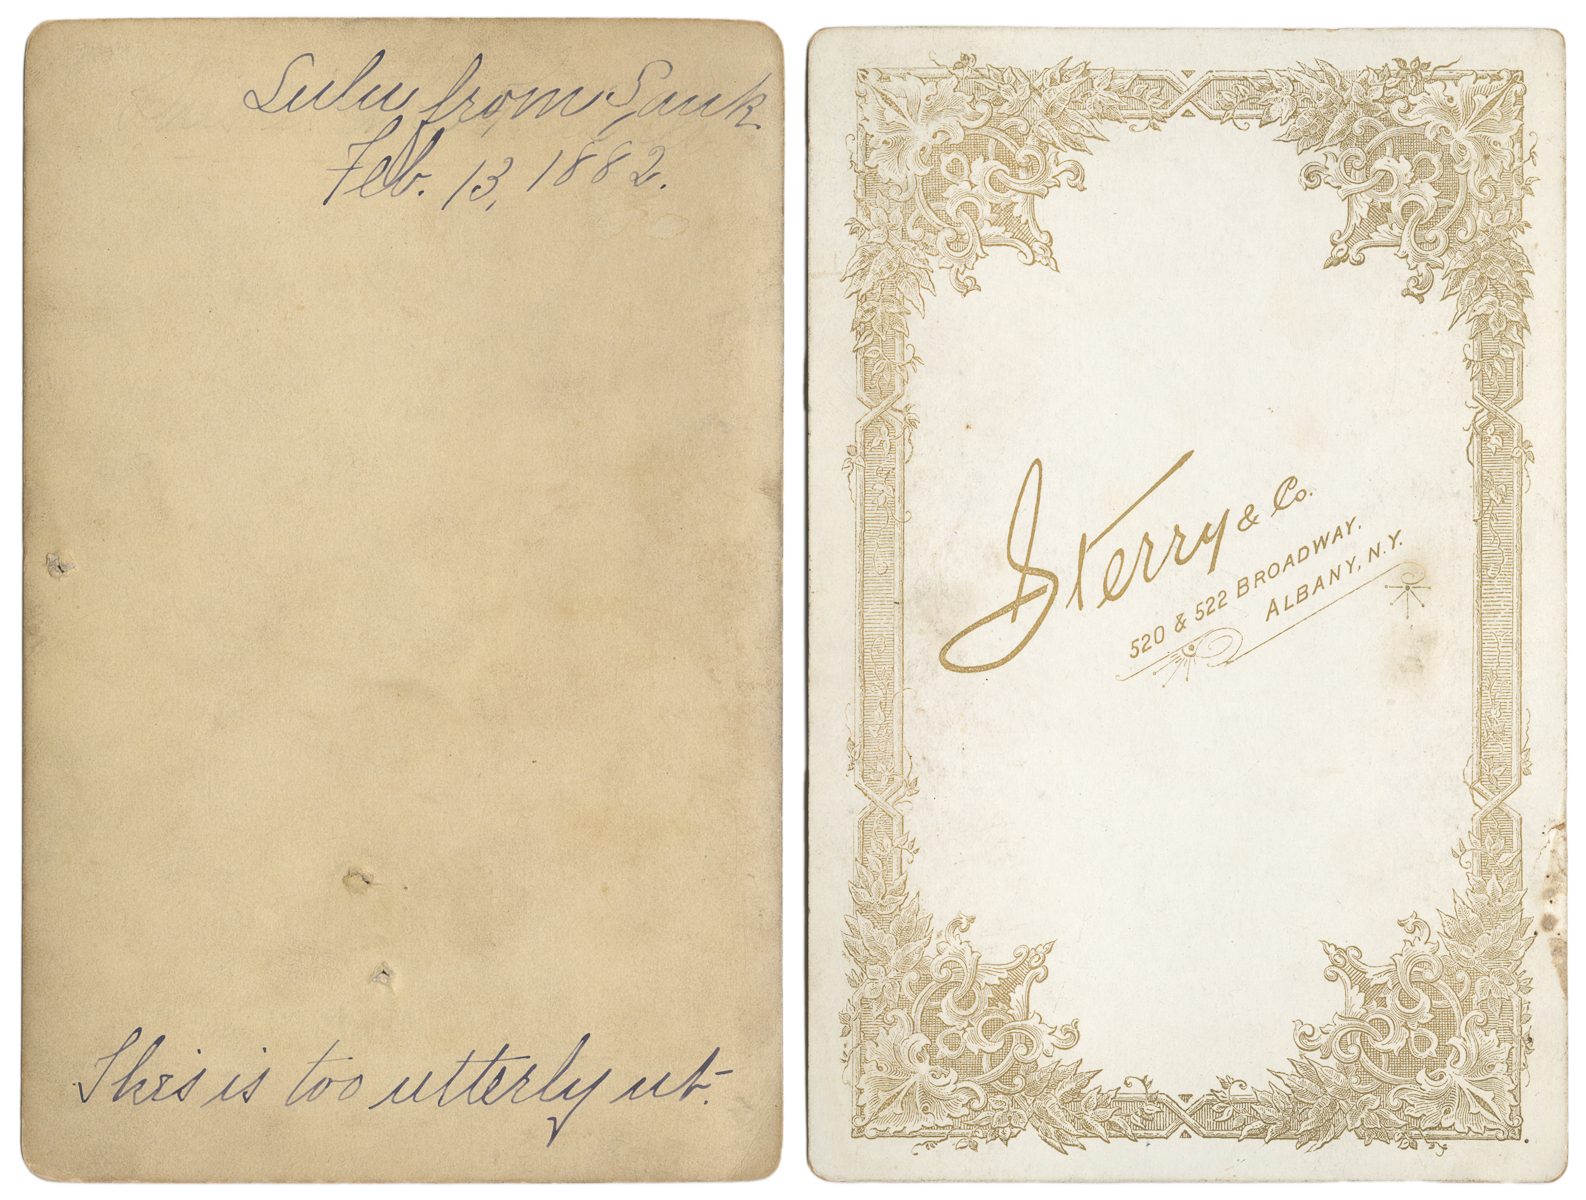 Lulu from Spunk
Feb. 13, 1882.
This is too utterly ut.
Sterry & Co.
520 & 522 BROADWAY.
ALBANY, N.Y.